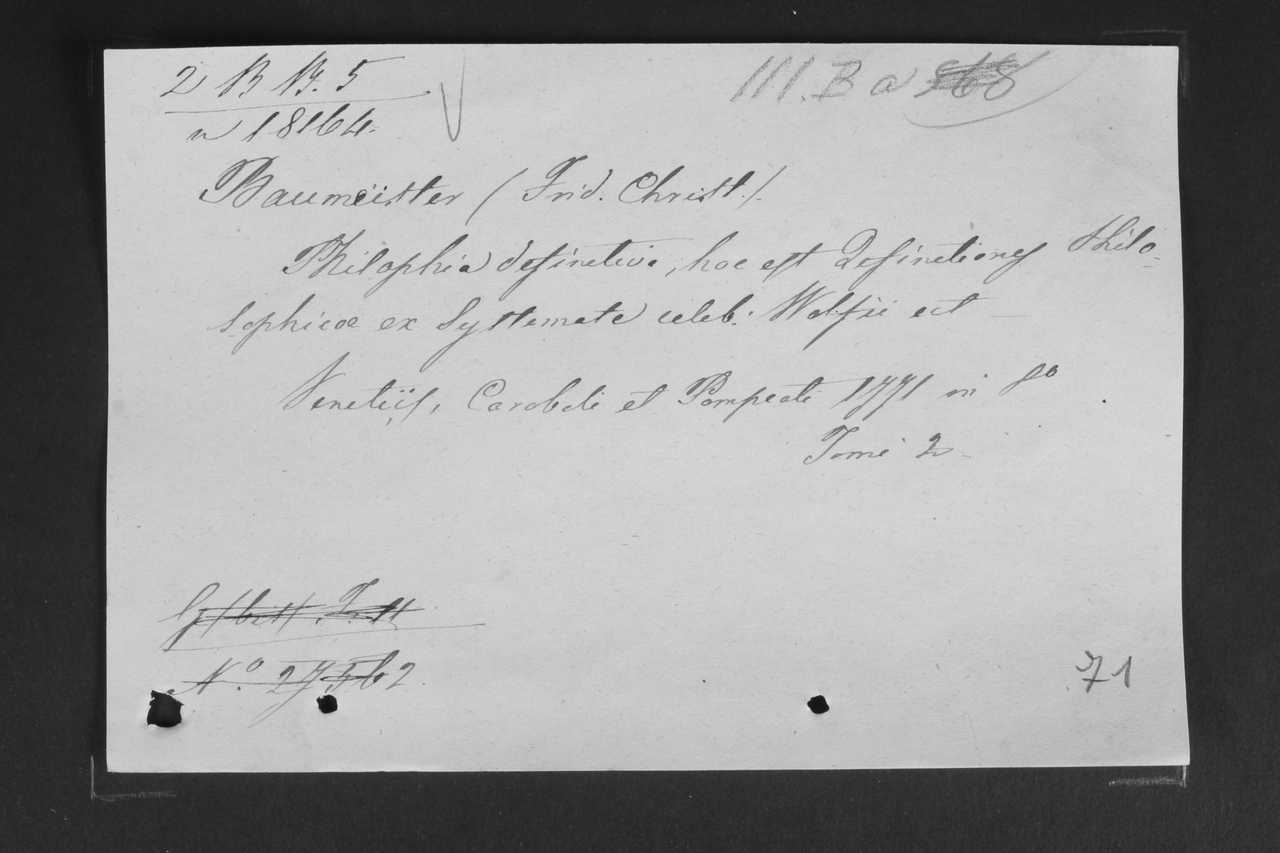 2 B B. 5
n 18164.
III. B a 568
Baumeister (Frid. Christ.).
Philophia definitiva, hoc est Definitiones Philo-
sophicae ex Systemate celeb. Wolfii ect
Venetiis, Caroboli et Pompeati 1771 in 8º
Tomi 2
Nº. 27562.
71